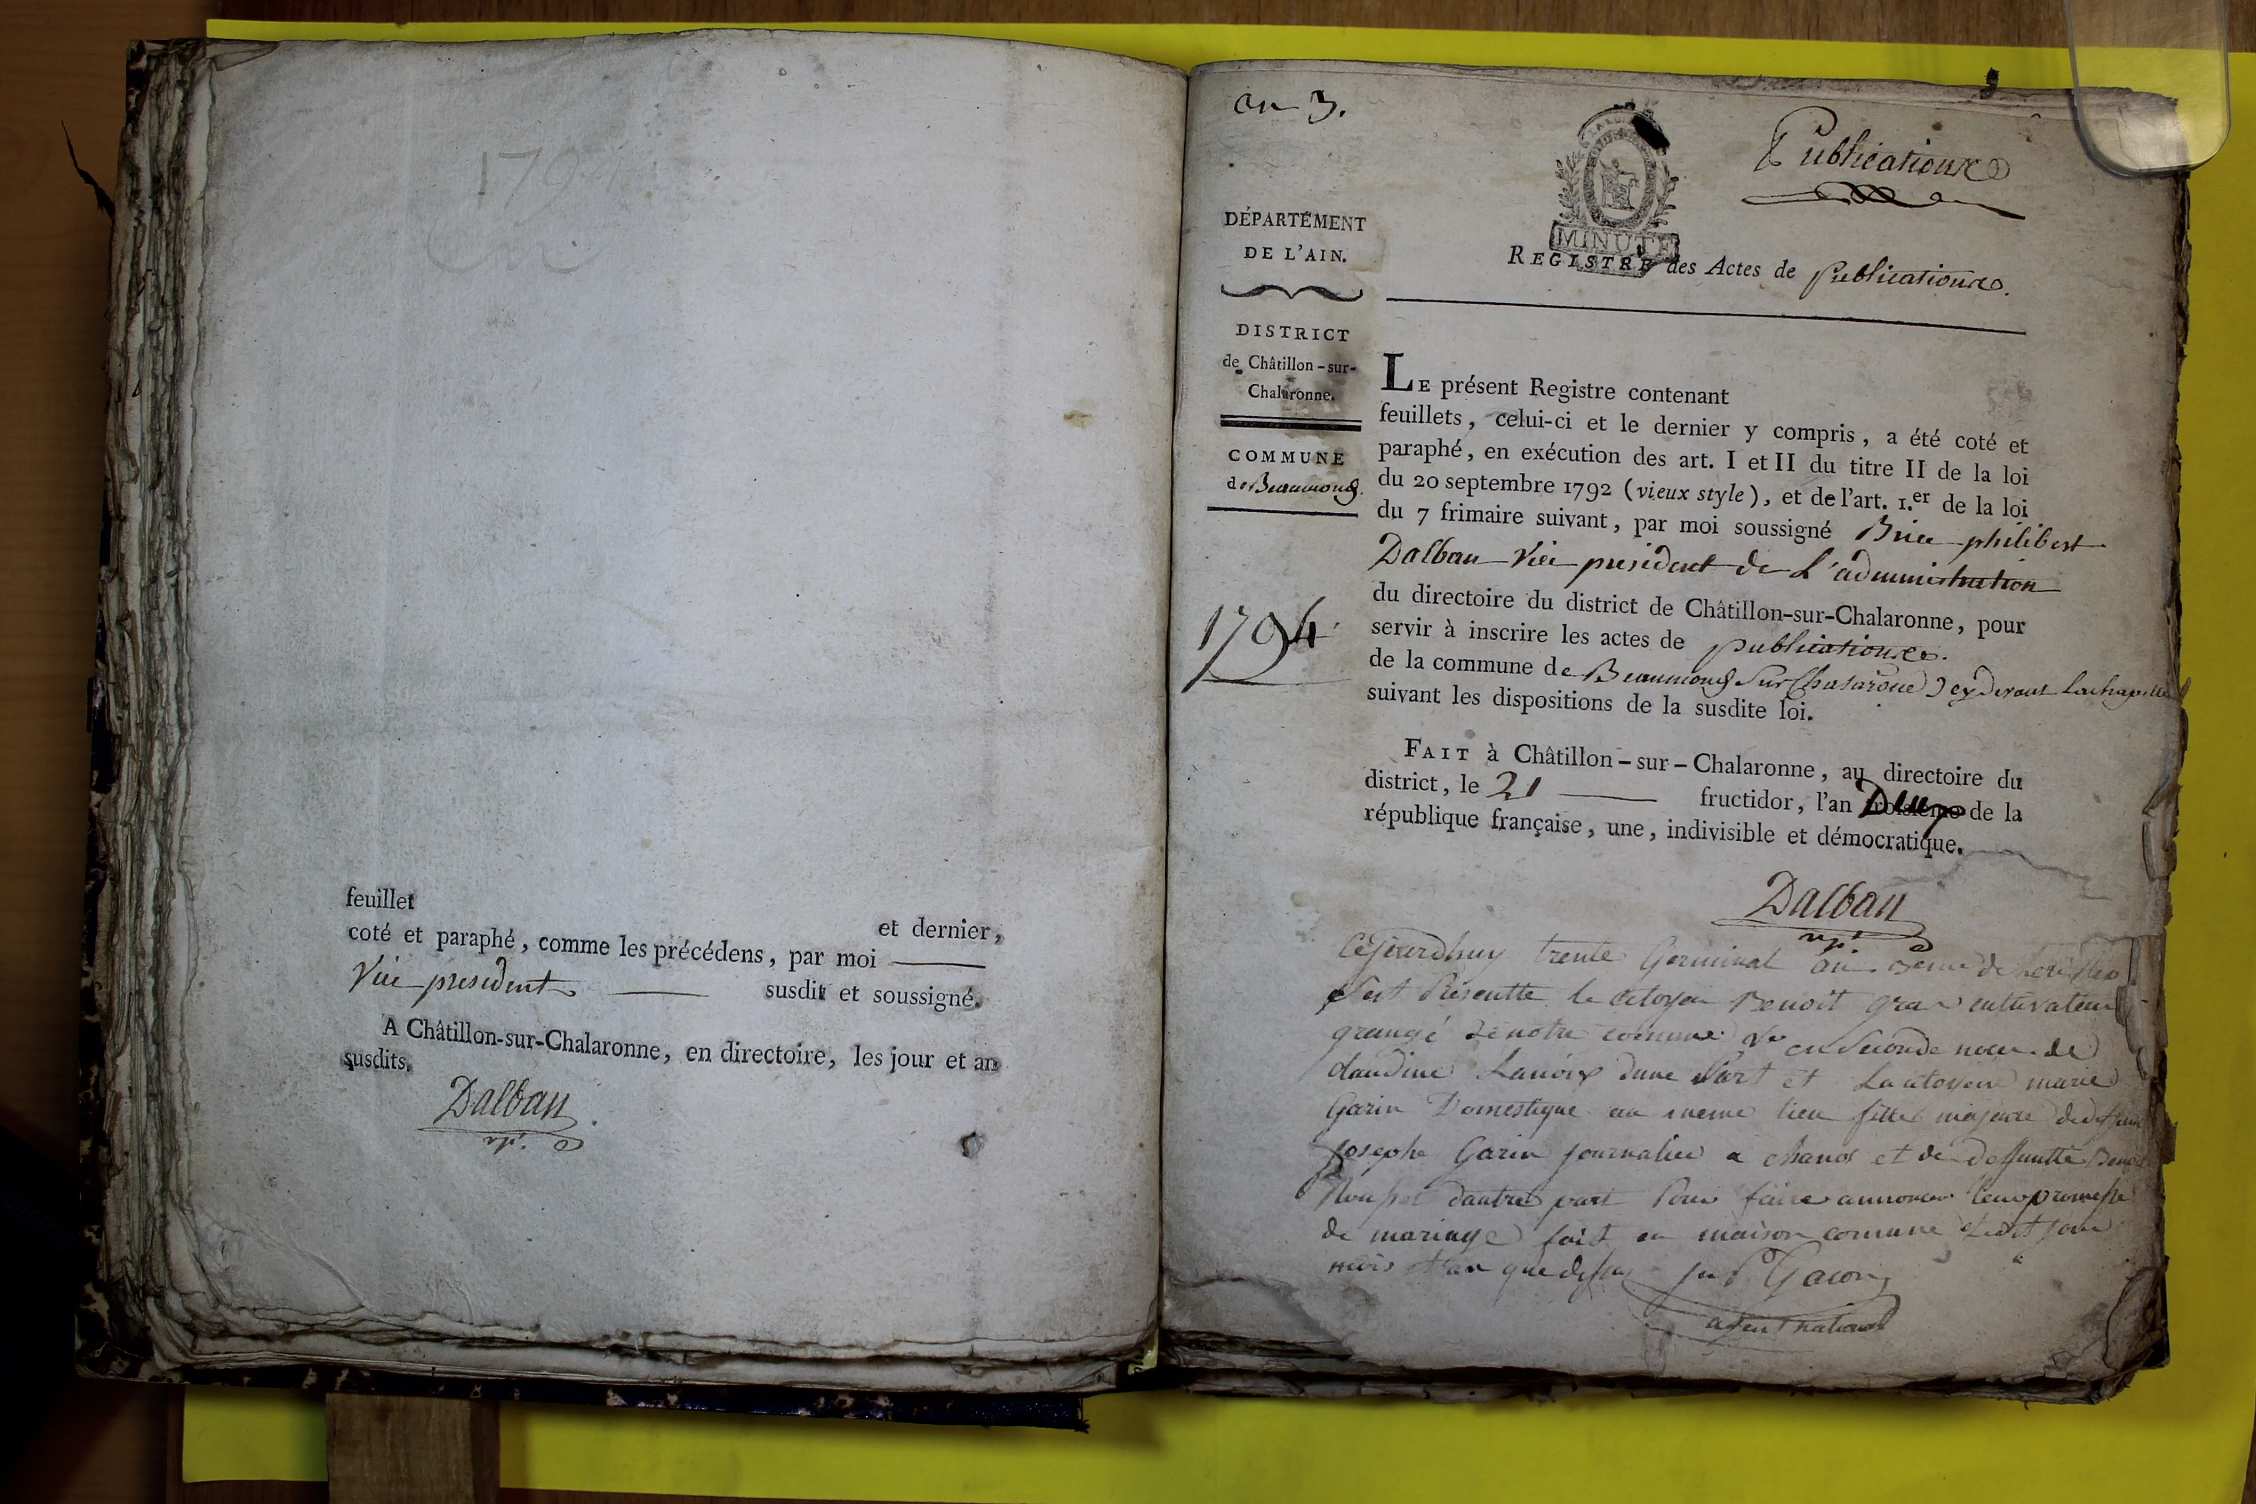 1794
feuillet
et dernier,
coté et paraphé, comme les précédens, par moi
Vice president susdit et soussigné.
A Châtillon-sur-Chalaronne, en directoire, les jour et an
susdits.
Dalban
vp.t
an 3.
Publications
MINUTE
DÉPARTEMENT
DE L'AIN.
REGISTRE des Actes de publications.
DISTRICT
de Châtillon-sur-
Chalaronne.
COMMUNE
de Beaumont.
1794
LE présent Registre contenant
feuillets, celui-ci et le dernier y compris, a été coté et
paraphé, en exécution des art. I et II du titre II de la loi
du 20 septembre 1792 (vieux style), et de l'art. 1.er de la loi
du 7 frimaire suivant, par moi soussigné Brice philibert
Dalban Vice president de L'administration
du directoire du district de Châtillon-sur-Chalaronne, pour
servir à inscrire les actes de publications.
de la commune de Beaumont Sur Chalarone) cy devant Lachapelle
suivant les dispositions de la susdite loi.
FAIT à Châtillon-sur-Chalaronne, au directoire du
district, le 21 fructidor, l'an Deux de la
république française, une, indivisible et démocratique.
Dalban
vp.t
Cejourdhuy trente Germinal an 3eme de
Sest Présentté le citoyen Benoit gra cultivateur
grangé de notre commune Vf en Seconde noce de
claudine Lanoix dune Part et La citoyene marie
Garin Domestique au meme lieu fille majeure de deffunt
Josephe Garin journalier a chanos et de deffuntte
dautre part Pour faire annoncer leur promesse
de mariage fait en maison comune Ledit jour
mois et an que dessus Gacon
agent national